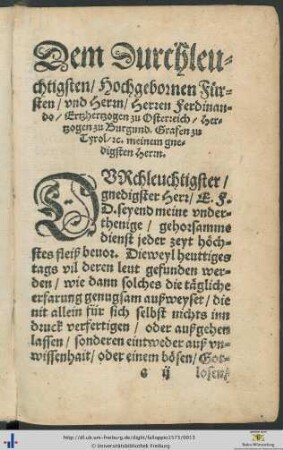 Dem Durchleu-
chtigsten / Hochgebornen Für-
sten / vnd Herrn / Herren Ferdinan-
do / Ertzhertzogen zu Osterreich / Her-
tzogen zu Burgund. Grafen zu
Tyrol / ꝛc. meinem gne-
digsten Herrn.
DVRchleuchtigster /
gnedigster Herr / E. F.
D. seyend meine vnder-
thenige / gehorsamme
dienst jeder zeyt höch-
stes fleiß beuor. Dieweyl heuttiges
tags vil deren leut gefunden wer-
den / wie dann solches die tägliche
erfarung genugsam außweyset / die
nit allein für sich selbst nichts inn
druck verfertigen / oder außgehen
lassen / sonderen eintweder auß vn-
wissenhait / oder einem bösen / Got-
ij losen /
© Universitätsbibliothek Freiburg